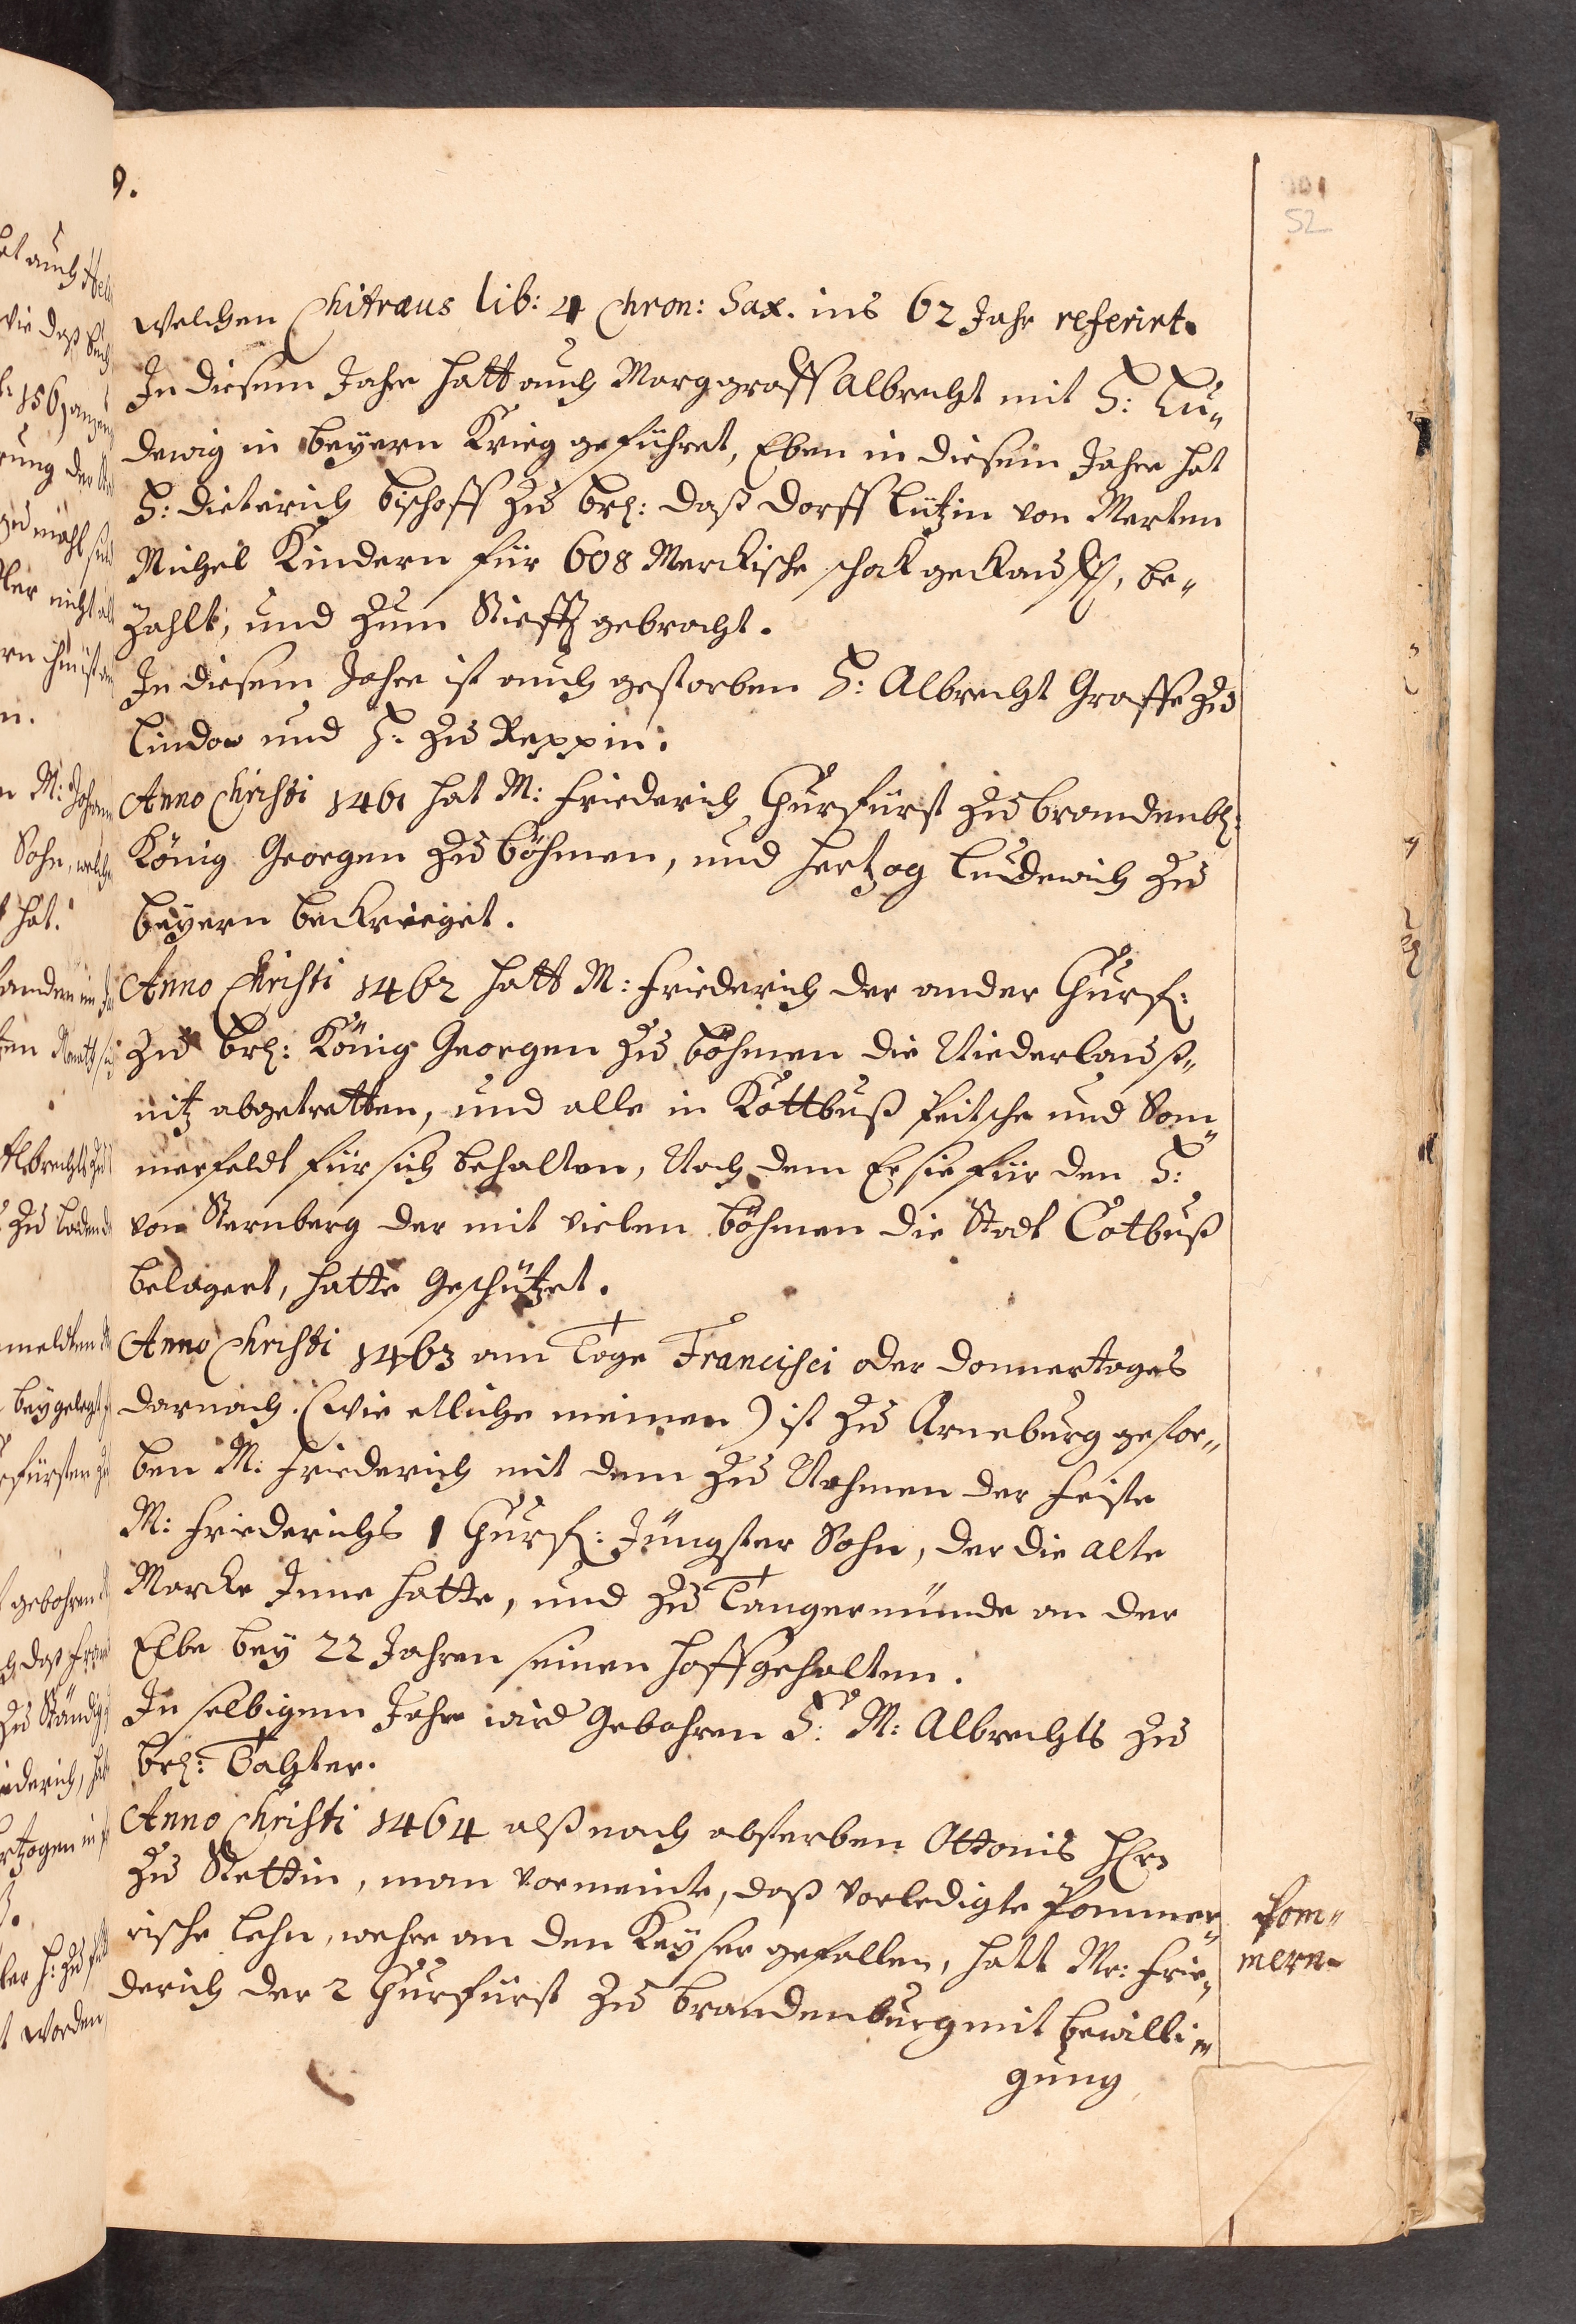 9.
101
52
welchen Chitræus lib: 4 Chron: Sax. ins 62 Jahr referirt.
In diesem Jahre hatt auch Marggraff Albrecht mit H: Lu„
dewig in Beyern Krieg geführet, Eben in diesem Jahre hat
H: Dieterich Bischoff zu Brb: daß Dorff Lützin von Merten
Michel Kindern für 608 Merckische schock gekaufft, be„
zahlt, und zum Stifft gebracht.
In diesem Jahre ist auch gestorben H: Albrecht Graffe zu
Lindow und H: zu Reppin.
Anno Christi 1461 hat M: Friederich Churfürst zu Brandenb:
König Georgen zu Böhmen, und Hertzog Ludewich zu
Beyern bekrieget.
Anno Christi 1462 hatt M: Friederich der ander Churf:
zu Brb: König Georgen zu Böhmen die Niederlauß„
nitz abgetretten, und alle in Kottbuß Peitsche und Som„
merfeldt für sich behalten, Nach dem Er sie für den H:
von Sternberg der mit vielen Böhmen die Stadt Cotbuß
belagert, hatte geschützet.
Anno Christi 1463 am Tage Francisci oder Donnertages
darnach (wie etliche meinen) ist zu Arneburg gestor„
ben M: Friederich mit dem zu Nahmen der Feiste
M: Friederichs 1 Churf: Jüngster Sohn, der die alte
Marcke Inne hatte, und zu Tangermünde an der
Elbe bey 22 Jahren seinen Hoff gehalten.
In selbigem Jahre wird gebohren H: M: Albrechts zu
Brb: Tochter.
Anno Christi 1464 alß nach absterben Ottonis
zu Stettin, man vormeinte, daß vorledigte Pommer„
rische Lehn, wehre an den Keyser gefallen, hatt Mr: Frie„
derich der 2 Churfürst zu Brandenburg mit bewilli„
gung
Pom„
mern.